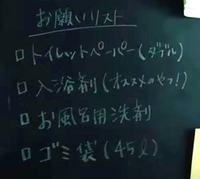 お願いリスト
□ トイレットペーパー(ダブル)
□ 入浴剤(オススメのやつ!)
□ お風呂用洗剤
□ ゴミ袋(45ℓ)